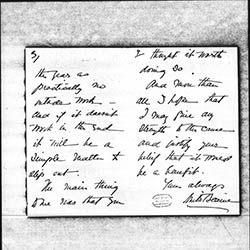 3/
the year as
practically no
outside work —
and if it doesn't
work in the end
it will be a
simple matter to
slip out.
The main thing
to me was that you
I thought it worth
doing so.
And more than
all I hope that
I may give any
strength to the cause
and justify your
belief that it would
be a benefit.
Yours always